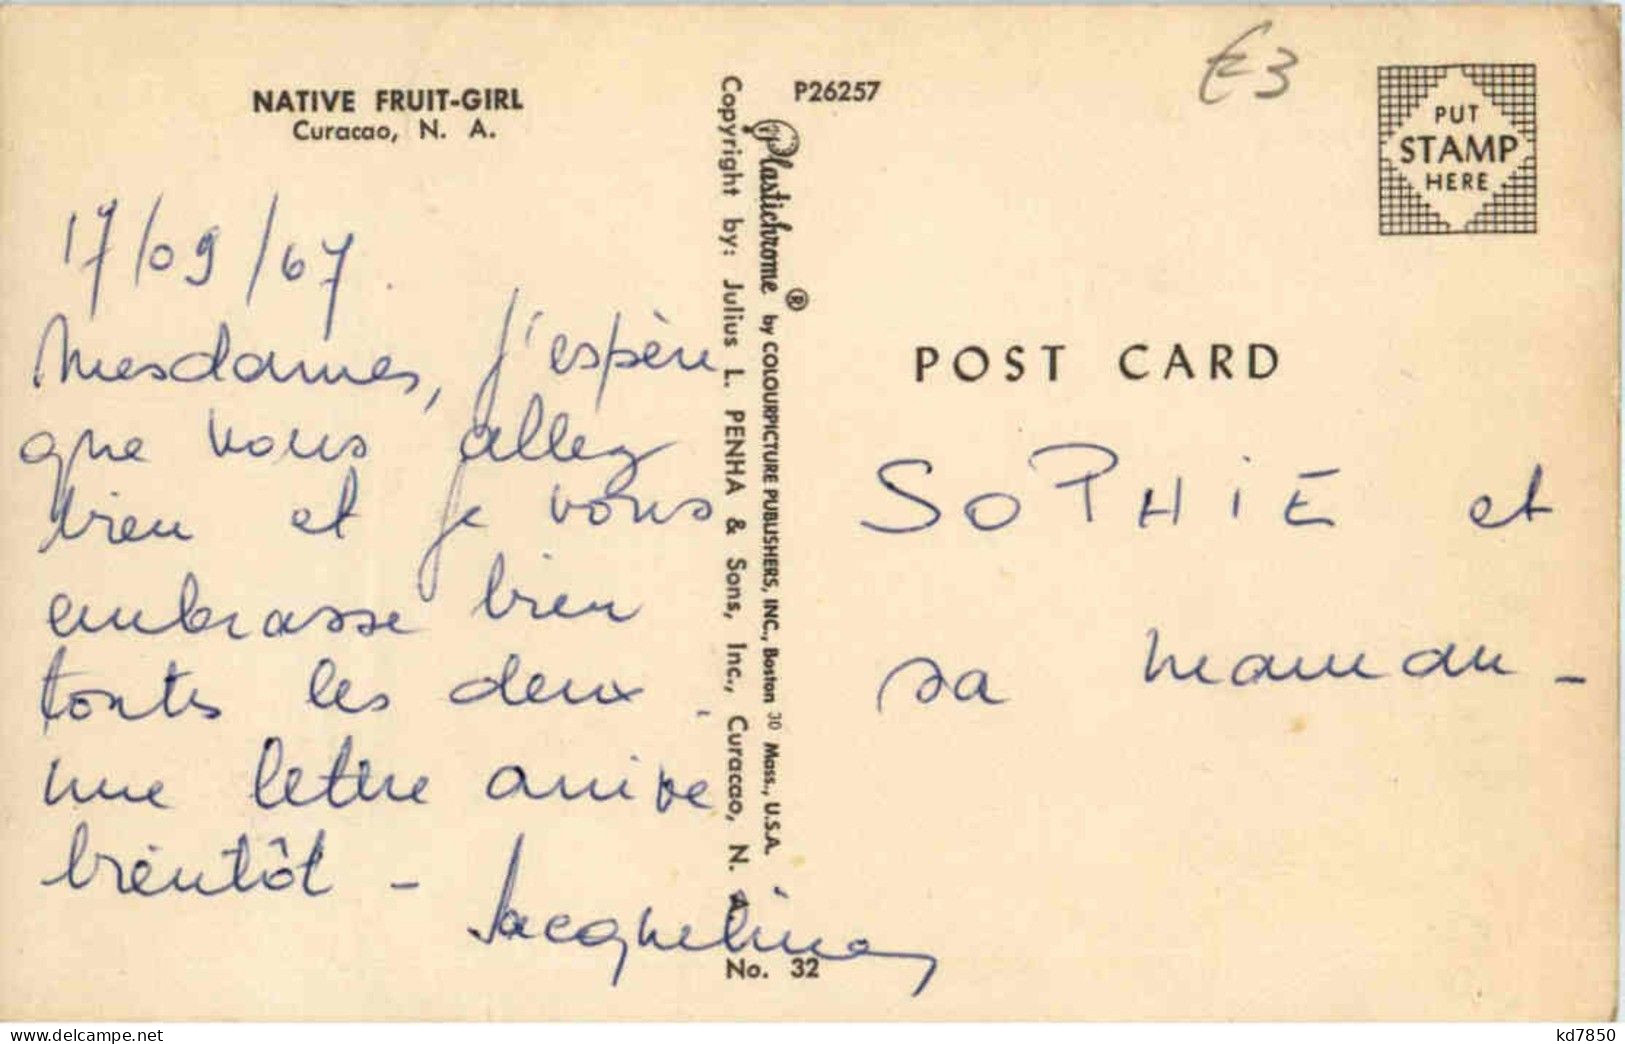 NATIVE FRUIT-GIRL
Curacao, N. A.
17/09/67.
Mesdames, j'espère
que vous allez
bien et je vous
embrasse bien
toutes les deux.
une lettre arrive
bientôt -
Jacqueline
Copyright by: Julius L. PENHA & Sons, Inc., Curacao, N. A.
Plastichrome ® by COLOURPICTURE PUBLISHERS, INC., Boston 30 Mass., U.S.A.
No. 32
P26257
€3
PUT
STAMP
HERE
POST CARD
SOPHIE et
sa maman -
kd7850